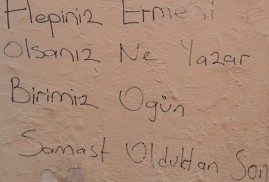 Hepiniz Ermeni
Olsanız Ne Yazar
Birimiz Ogün
Samast Olduktan Son